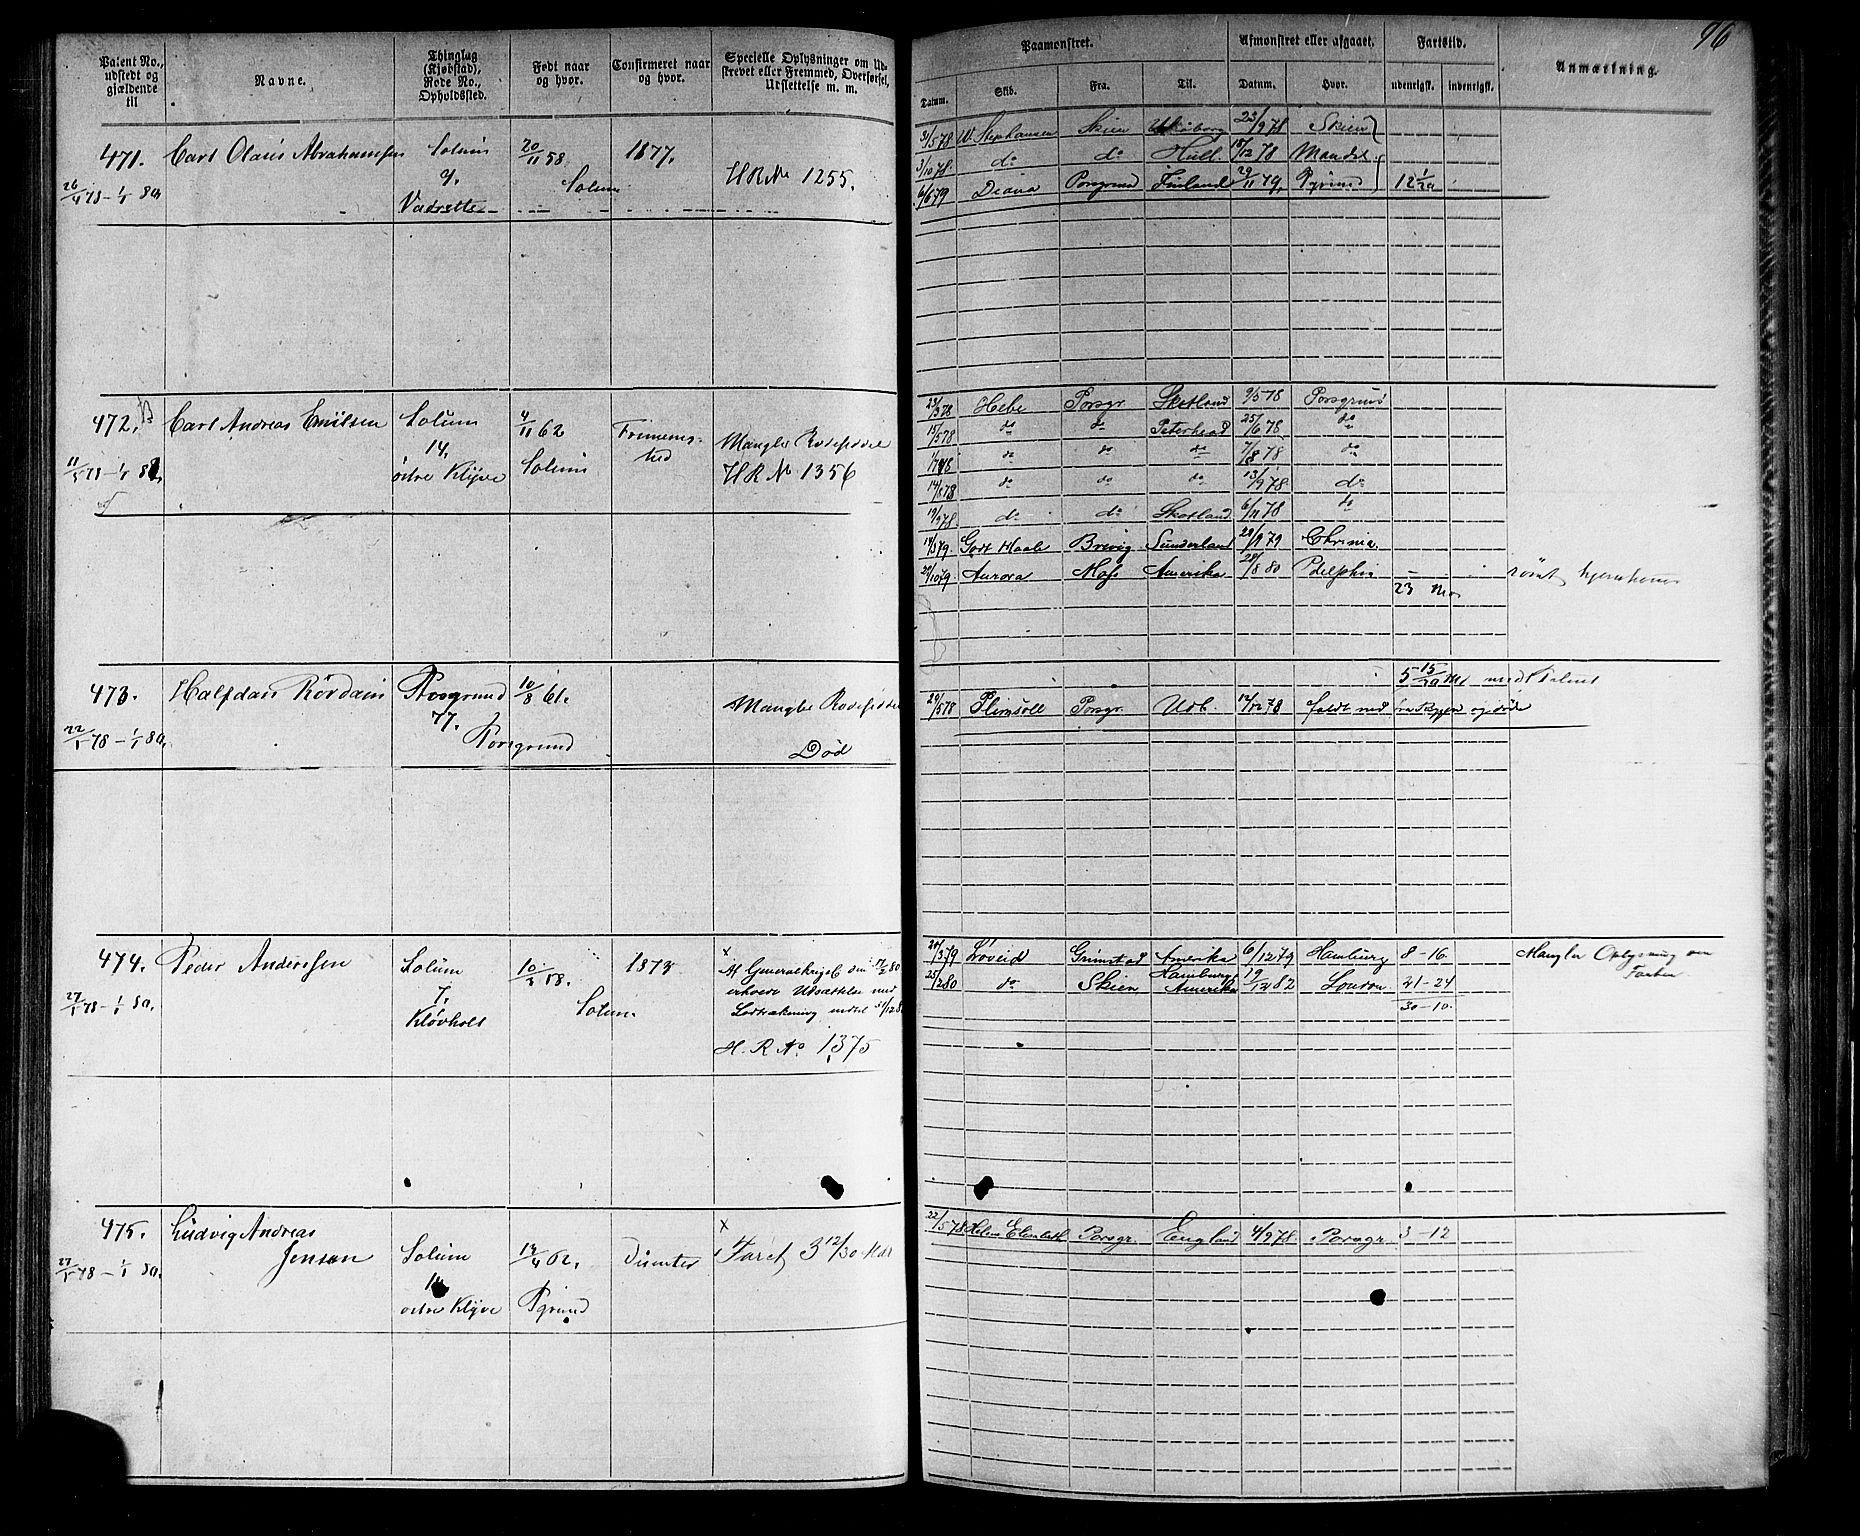 96
Patent No., udstedt og gjældende til
Navne.
Thinglag (Kjøbstad), Rode No., Opholdssted.
Født naar og hvor.
Confirmeret naar og hvor.
Specielle Oplysninger om Udskrevet eller Fremmed, Overførsel, Udslettelse m. m.
Paamønstret.
Datum.
Skib.
Fra.
Til.
Afmønstret eller afgaaet.
Datum.
Hvor.
Fartstid.
udenrigsk.
indenrigsk.
Anmærkning.
471. Carl Olaus Abrahamsen Solum 20/11 58. 1877.
9. Solum H R No 1255.
26/4 78 – 1/1 80
3/5 78 W. Stephansen Skien 23/9 78 Skien
3/10 78 do do Hull 15/12 78 Mandal
6/6 79 Diana Porsgrund Finland 29/11 79 Pgrund 12 1/30
472. Carl Andreas Emilsen Solum 4/11 62
14. Solum Mangler Rodeseddel
11/5 78 – 1/1 8 østre Klyve H R No 1356
23/3 78 Hebe Porsgr. Skotland 9/5 78 Porsgrund
15/5 78 do do Peterhead 25/6 78 do
1/7 78 do do do 7/8 78 do
14/8 78 do do do 13/9 78 do
19/9 78 do do Skotland 6/11 78 do
79 Godt Haab Brevig Sunderland 79 Chrania
10 79 Aurora Moss Amerika 8 80 Pdelphia rømt
23 Mdr
473. Halfdan Rördam Porsgrund 10/8 61. Mangler Rodeseddel
77. Porsgrund
22/5 78 – 1/1 80. Død
5 15/30 Md
29/5 78 Plimsoll Porsgr. Udl. 12/12 78 faldt ned fra Riggen og døde
474. Peder Andersen Solum 10/2 58. 1873
7. Solum
27/5 78 – 1/1 80. Kløvholt
x
Af Generalkrigsk. den 17/2 80
erhvervet Udsættelse med
Lodtrækning indtil 31/12 8
H. R No 1375
20/3 79 Löveid Grimstad Amerika 6/12 79 Hamburg 8 – 16 Mangler Oplysning om
25/2 80 do Skien Hamburg Amerika 19/12 82 London 21 – 24
30 – 10.
475. Ludvig Andreas
Jensen Solum 14/4 62. x Faret 3 12/30 Mdr
14
27/5 78 – 1/1 80. østre Klyve Pgrund
22/5 78 Helene Elisabeth Porsgr. England 4/9 78 Porsgr. 3 – 12